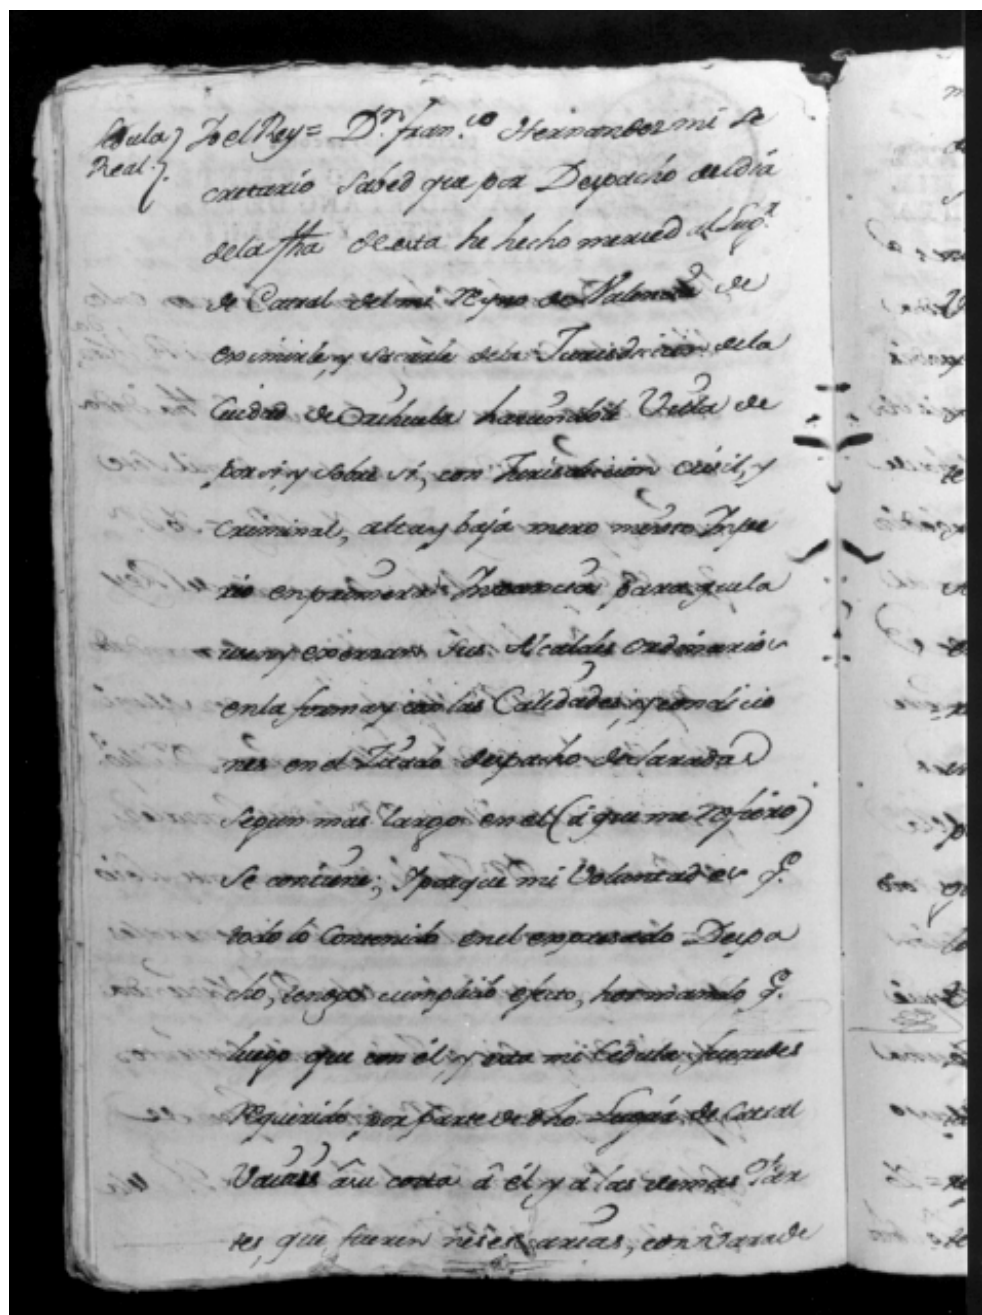 Cedula
Real.
Yo el Rey = D.n Fran.co Hernandez mi Se
cretario Sabed que por Despacho del dia
dela fha de esta he hecho merced al Lug.r
de Catral del mi Reyno de Valencia de
eximirle, y sacarle dela Jurisdiccion dela
Ciudad de Orihuela haciendole Villa de
por si, y sobre si, con Jurisdiccion civil, y
Criminal, alta y baja mero misto Impe
rio en primera Instancia para que la
usen y exerzan sus Alcaldes ordinarios
en la forma y con las Calidades, y condicio
nes en el Zitado despacho declaradas
segun mas largo en el (á que me refiero)
Se contiene; Y porque mi Voluntad es q.
todo lo Contenido en el expresado Despa
cho, tenga cumplido efecto, he mandado q.
luego que con él, y esta mi Cedula, fueredes
Requerido por parte de dho Lugar de Catral
Vaiais á su costa á él y á las demas Par
tes, que fueren nesesarias, con Vara de